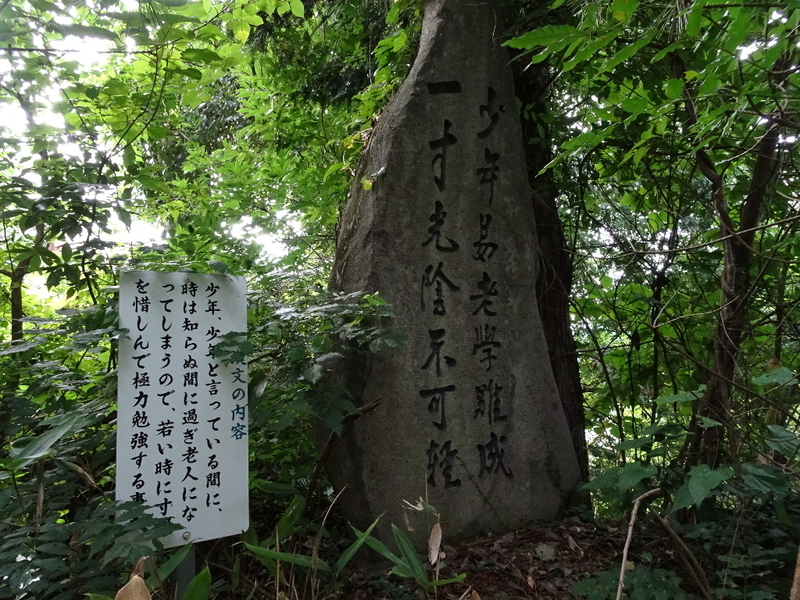 少年易老學難成
一寸光陰不可輕
文の内容
少年、少年と言っている間に、
時は知らぬ間に過ぎ老人にな
ってしまうので、若い時に寸
を惜しんで極力勉強する事